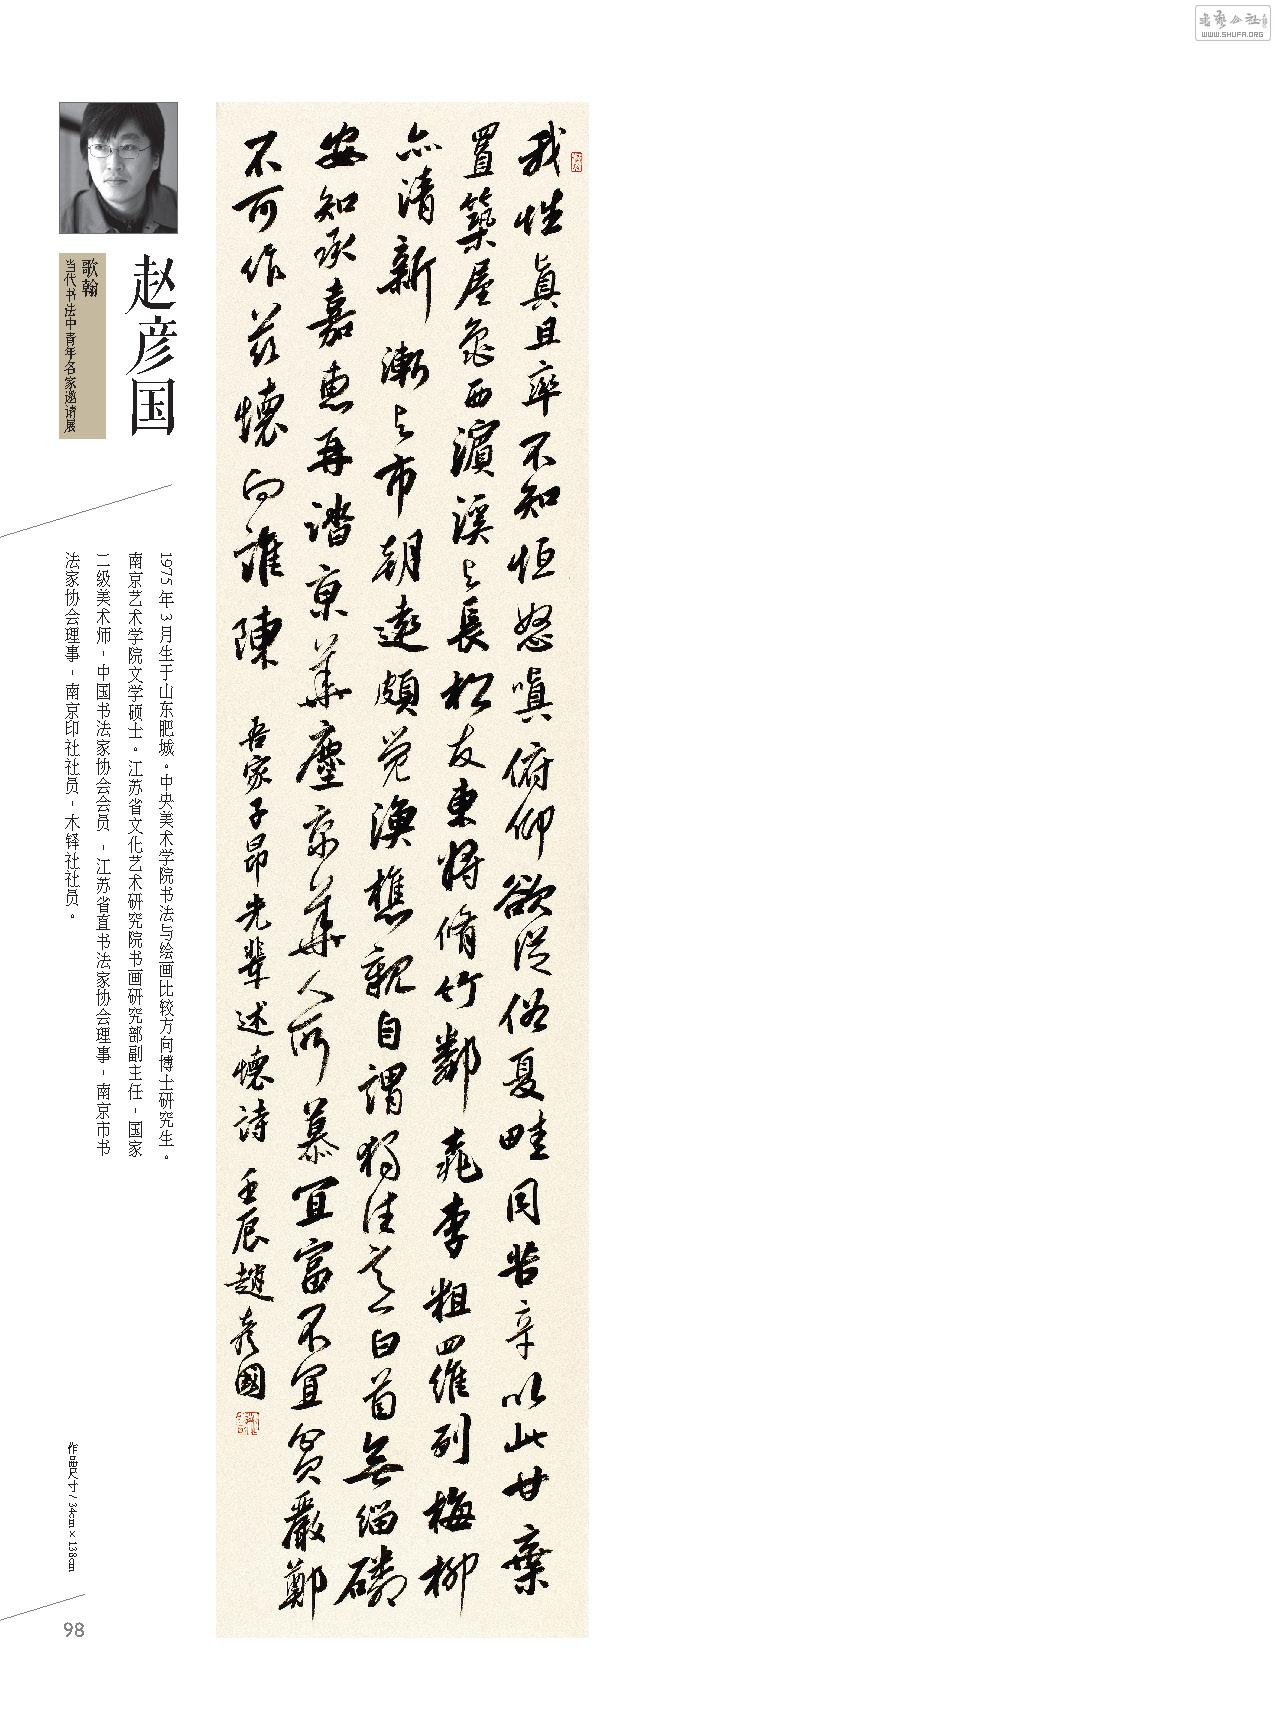 我性真且率不知恒怒嗔俯仰欲從俗夏畦同苦辛以此甘棄
置築屋龜西濱溪与長松友東將脩竹鄰桃李粗羅列梅柳
亦清新漸与市朝遠頗觉漁樵親自謂獨往意白首無緇磷
安知承嘉惠再踏京華塵京華人所慕宜富不宜貧嚴鄭
不可作茲懷向誰陳 吾家子昂先輩述懷詩 壬辰趙彦國
赵彦国
歌翰
当代书法中青年名家邀请展
1975年3月生于山东肥城。中央美术学院书法与绘画比较方向博士研究生。
南京艺术学院文学硕士。江苏省文化艺术研究院书画研究部副主任-国家
二级美术师-中国书法家协会会员-江苏省直书法家协会理事-南京市书
法家协会理事-南京印社社员-木铎社社员。
作品尺寸/34cm×138cm
98
书艺公社
WWW.SHUFA.ORG